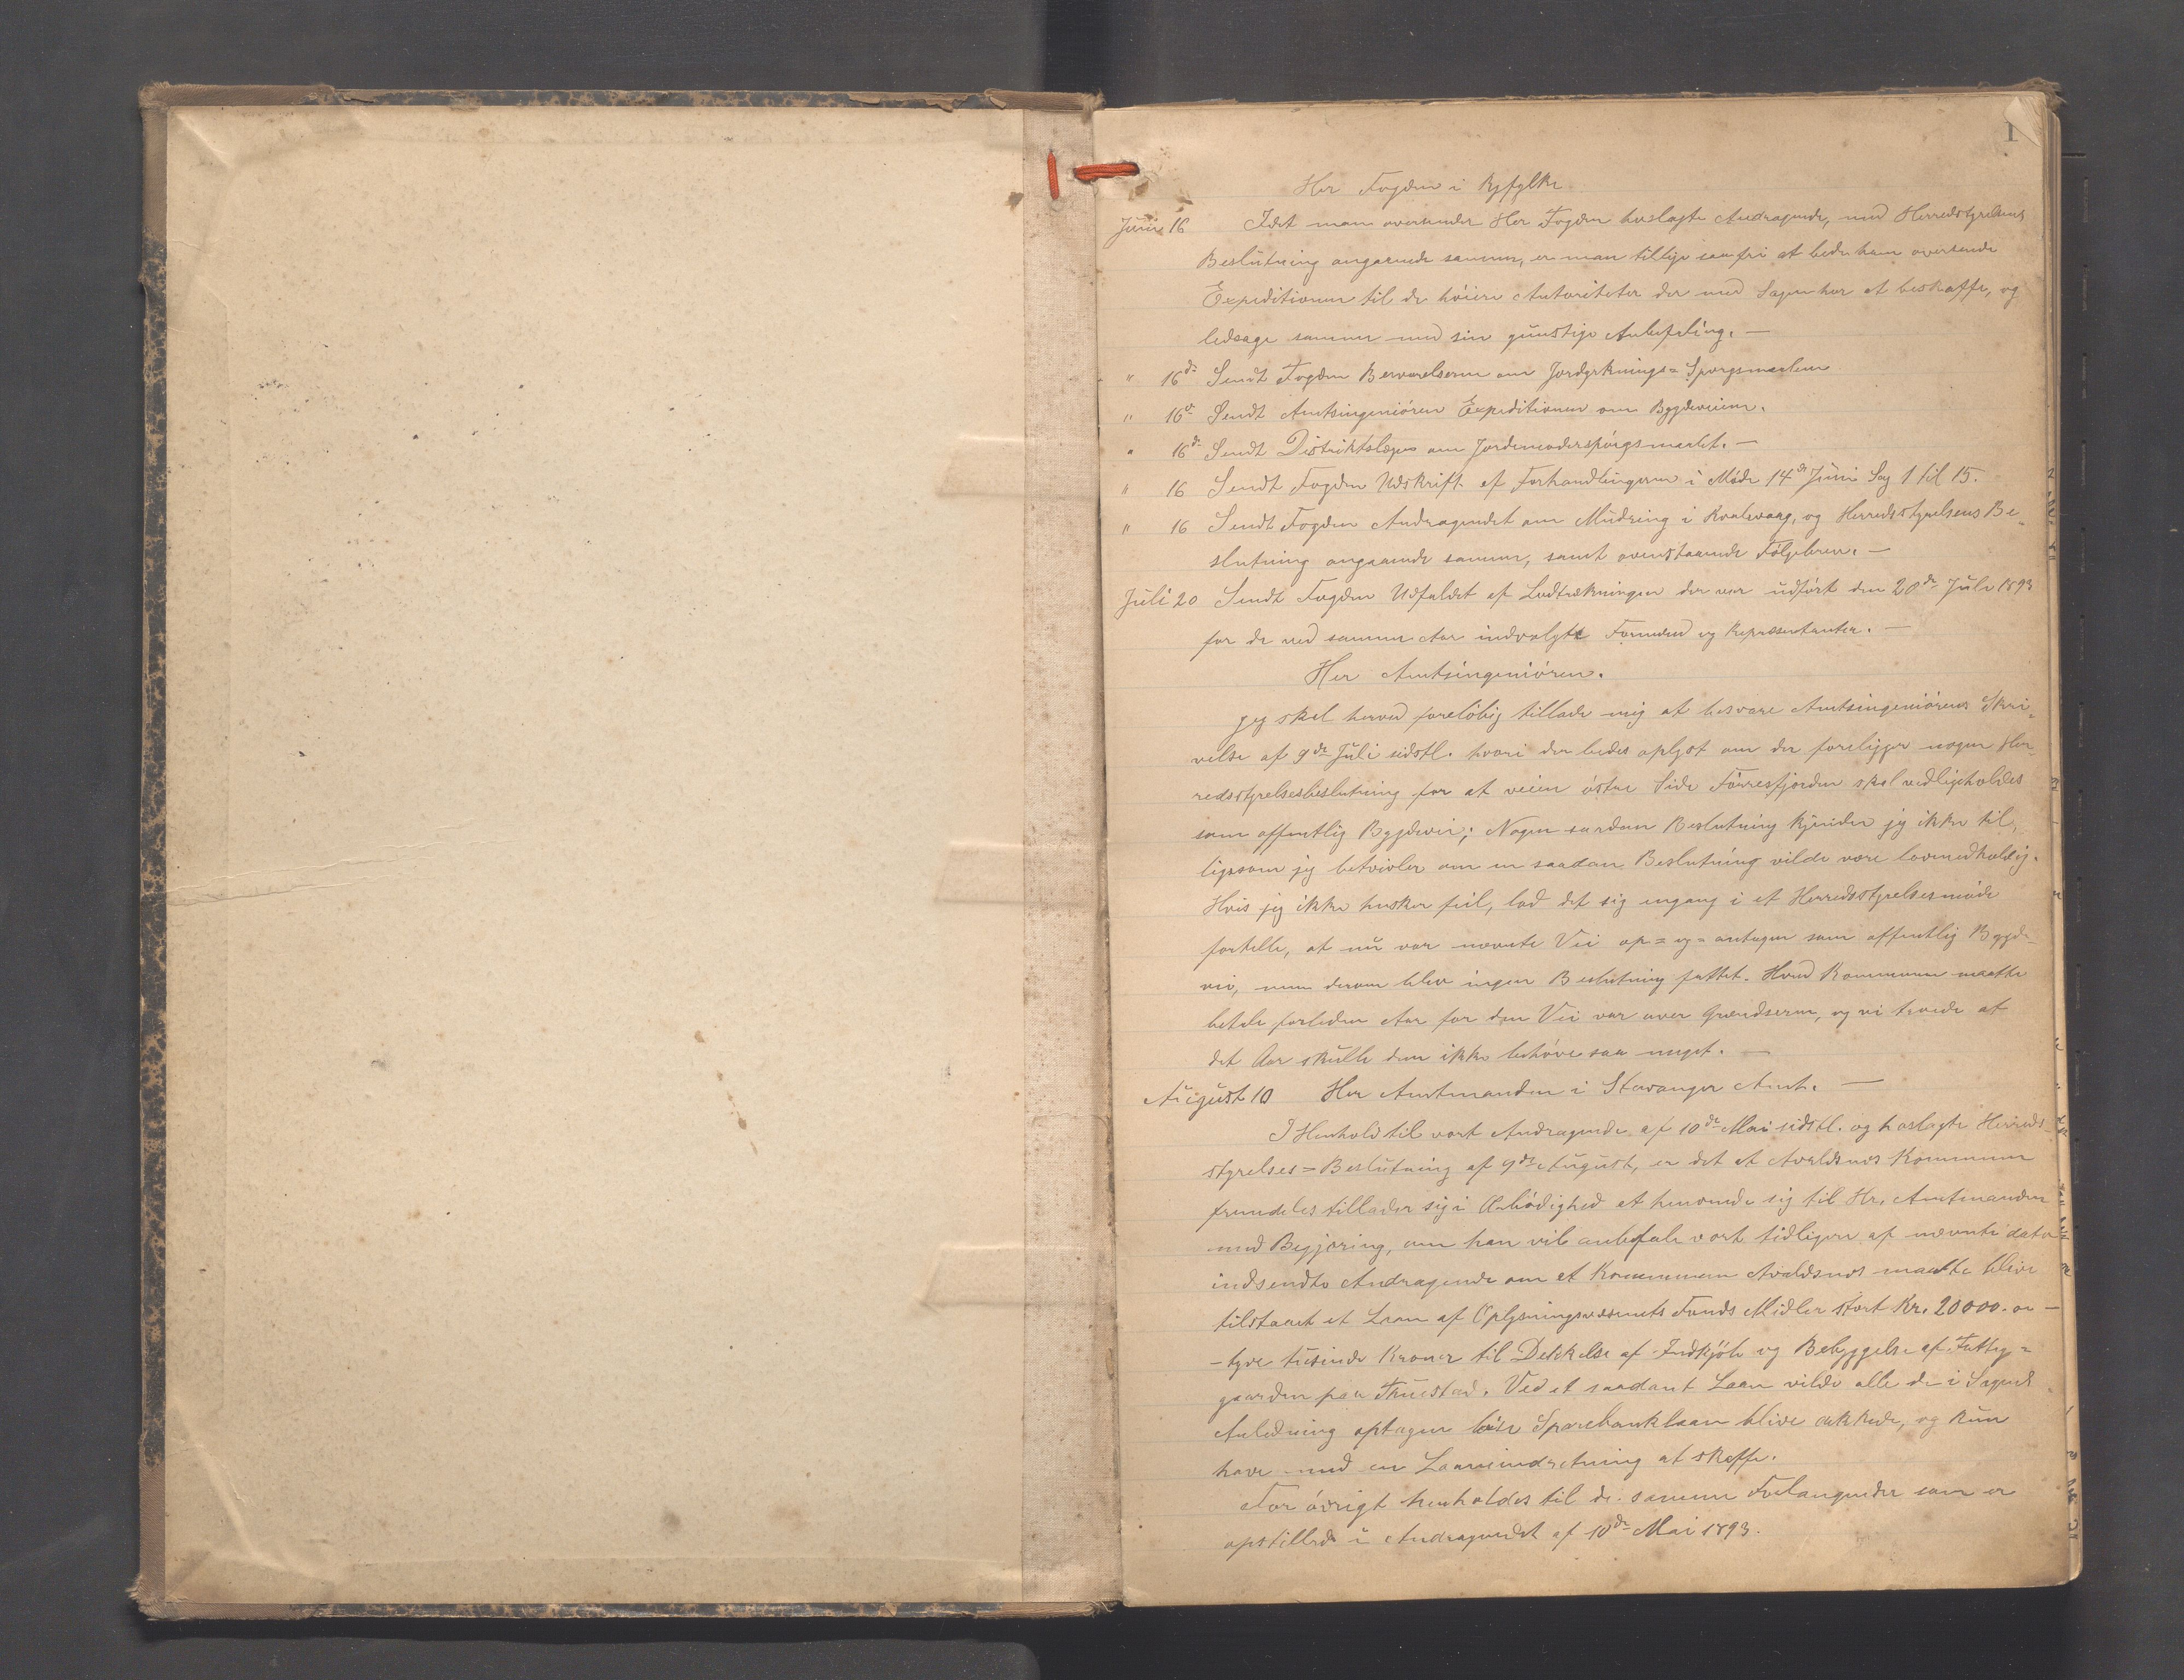 1
Her Fogden i Ryfylke
Juni 16 Idet man oversender Her Fogden hoslagte Andragende, med Herredstyrelsens
Beslutning angaaende samme, er man tillige saa fri at bede ham oversende
Expeditionen til de höiere Autoriteter der med Sagen har at beskaffe, og
ledsage samme med sin gunstige Anbefaling. —
" 16de Sendt Fogden Besvarelserne om Jordyrknings=Sporgsmaalene
" 16de Sendt Amtsingeniören Expeditionen om Bygdeveiene.
" 16de Sendt Distriktslægen om Jordemoderspörgsmaalet. —
" 16 Sendt Fogden Udskrift af Forhandlingerne i Möde 14de Juni Sag 1 til 15.
" 16 Sendt Fogden Andragendet om Mudring i Kvalevaag, og Herredsstyrelsens Be-
slutning angaaende samme, samt ovenstaaende Fölgebrev. —
Juli 20 Sendt Fogden Udfaldet af Lodtrækningen der var udfört den 20de Juli 1893
for de ved samme Aar indvalgte Formænd og Repræsentanter. —
Her Amtsingeniören.
Jeg skal herved forelöbig tillade mig at besvare Amtsingeniörens Skri-
velse af 9de Juli sidstl. hvori der bedes oplyst om der foreligger nogen Her-
redsstyrelsesbeslutning for at veien östre Side Förresfjorden skal vedligeholdes
som offentlig Bygdevei; Nogen saadan Beslutning kjender jeg ikke til,
ligesom jeg betvivler om en saadan Beslutning vilde være lovmedholdig.
Hvis jeg ikke husker feil, lod det sig engang i et Herredsstyrelsesmöde
fortelle, at nu var nævnte Vei op=og=antagen som offentlig Bygde-
vei, men derom blev ingen Beslutning fattet. Hvad Kommunen maatte
betale forleden Aar for den Vei var over Grændserne, og vi troede at
det Aar skulle den ikke behöve saa meget. —
August 10 Her Amtmanden i Stavanger Amt. —
I Henhold til vort Andragende af 10de Mai sidstl. og hoslagte Herreds-
styrelses=Beslutning af 9de August, er det at Avaldsnes Kommune
fremdeles tillader sig i Ærbödighed at henvende sig til Hr. Amtmanden
med Begjæring, om han vil anbefale vort tidligere af nævnte dato
indsendte Andragende om at Kommunen Avaldsnes maatte blive
tilstaaet et Laan af Oplysningsvæsenets Fonds Midler stort Kr. 20000.00 —
– tyve tusinde Kroner til Dekkelse af Indkjöb og Bebyggelse af Fattig=
gaarden paa Fruestad. Ved et saadant Laan vilde alle de i Sagens
Anledning optagne löse Sparebanklaan blive dekkede, og kun
have med en Laaneindretning at skaffe.
For övrigt henholdes til de samme Forlangender som er
opstillede i Andragendet af 10de Mai 1893.